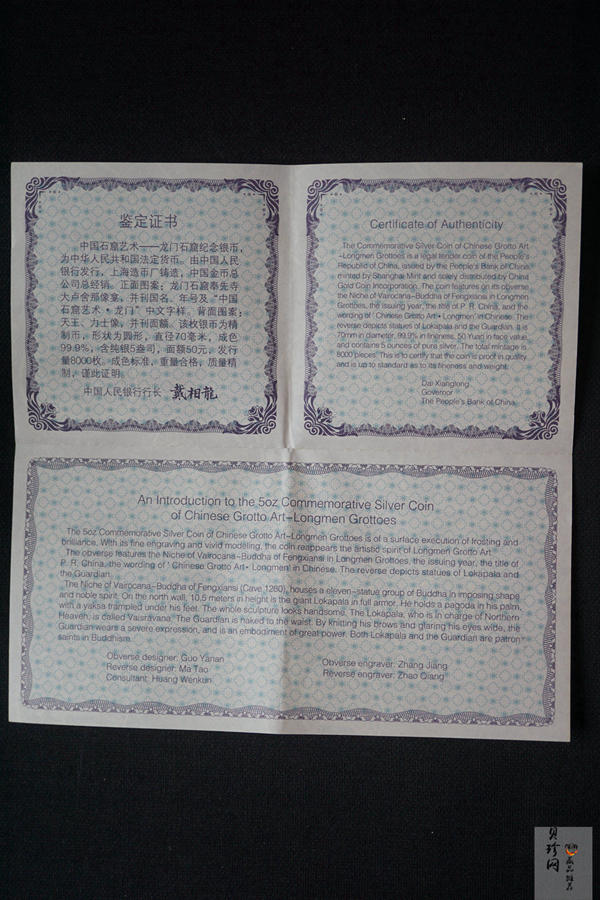 鉴定证书
中国石窟艺术——龙门石窟纪念银币,
为中华人民共和国法定货币。由中国人民
银行发行,上海造币厂铸造,中国金币总
公司总经销。正面图案:龙门石窟奉先寺
大卢舍那像龛,并刊国名、年号及“中国
石窟艺术·龙门”中文字样。背面图案:
天王、力士像,并刊面额。该枚银币为精
制币,形状为圆形,直径70毫米,成色
99.9%,含纯银5盎司,面额50元,发行
量8000枚。成色标准,重量合格,质量精
制,谨此证明。
中国人民银行行长 戴相龍
Certificate of Authenticity
The Commemorative Silver Coin of Chinese Grotto Art
-Longmen Grottoes is a legal tender coin of the People's
Republic of China, issued by the People's Bank of China,
minted by Shanghai Mint and solely distributed by China
Gold Coin Incorporation. The coin features on its obverse
the Niche of Vairocana-Buddha of Fengxiansi in Longmen
Grottoes, the issuing year, the title of P. R. China, and the
wording of ' Chinese Grotto Art • Longmen' in Chinese. The
reverse depicts statues of Lokapala and the Guardian. It is
70mm in diameter, 99.9% in fineness, 50 Yuan in face value
and contains 5 ounces of pure silver. The total mintage is
8000 pieces. This is to certify that the coin is proof in quality
and is up to standard as to its fineness and weight.
Dai Xianglong
Governor
The People's Bank of China
An Introduction to the 5oz Commemorative Silver Coin
of Chinese Grotto Art-Longmen Grottoes
The 5oz Commemorative Silver Coin of Chinese Grotto Art-Longmen Grottoes is of a surface execution of frosting and
brilliance. With its fine engraving and vivid modeling, the coin reappears the artistic spirit of Longmen Grotto Art.
The obverse features the Niche of Vairocana-Buddha of Fengxiansi, the issuing year, the title of
P. R. China, the wording of ' Chinese Grotto Art• Longmen' in Chinese. The reverse depicts statues of Lokapala and
the Guardian.
The Niche of Vairocana-Buddha of Fengxiansi (Cave 1280), houses a eleven-statue group of Buddha in imposing shape
and noble spirit. On the north wall, 10.5 meters in height is the giant Lokapala in full armor. He holds a pagoda in his palm,
with a yaksa trampled under his feet. The whole sculpture looks handsome. The Lokapala, who is in charge of Northern
Heaven, is called Vaisravana. The Guardian is naked to the waist. By knitting his brows and glaring his eyes wide, the
Guardian wears a severe expression, and is an embodiment of great power. Both Lokapala and the Guardian are patron
saints in Buddhism.
Obverse designer: Guo Yanan
Reverse designer: Ma Tao
Consultant: Huang Wenkun
Obverse engraver: Zhang Jiang
Reverse engraver: Zhao Qiang
贝珍网